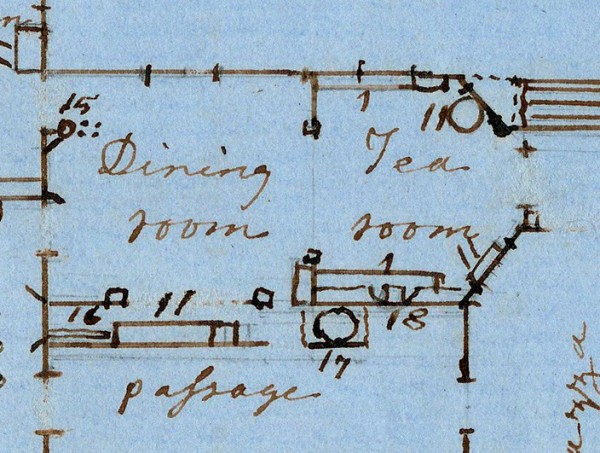 15
1
11
Dining
Tea
room
room
1
1
16
11
18
17
paſsage
azza